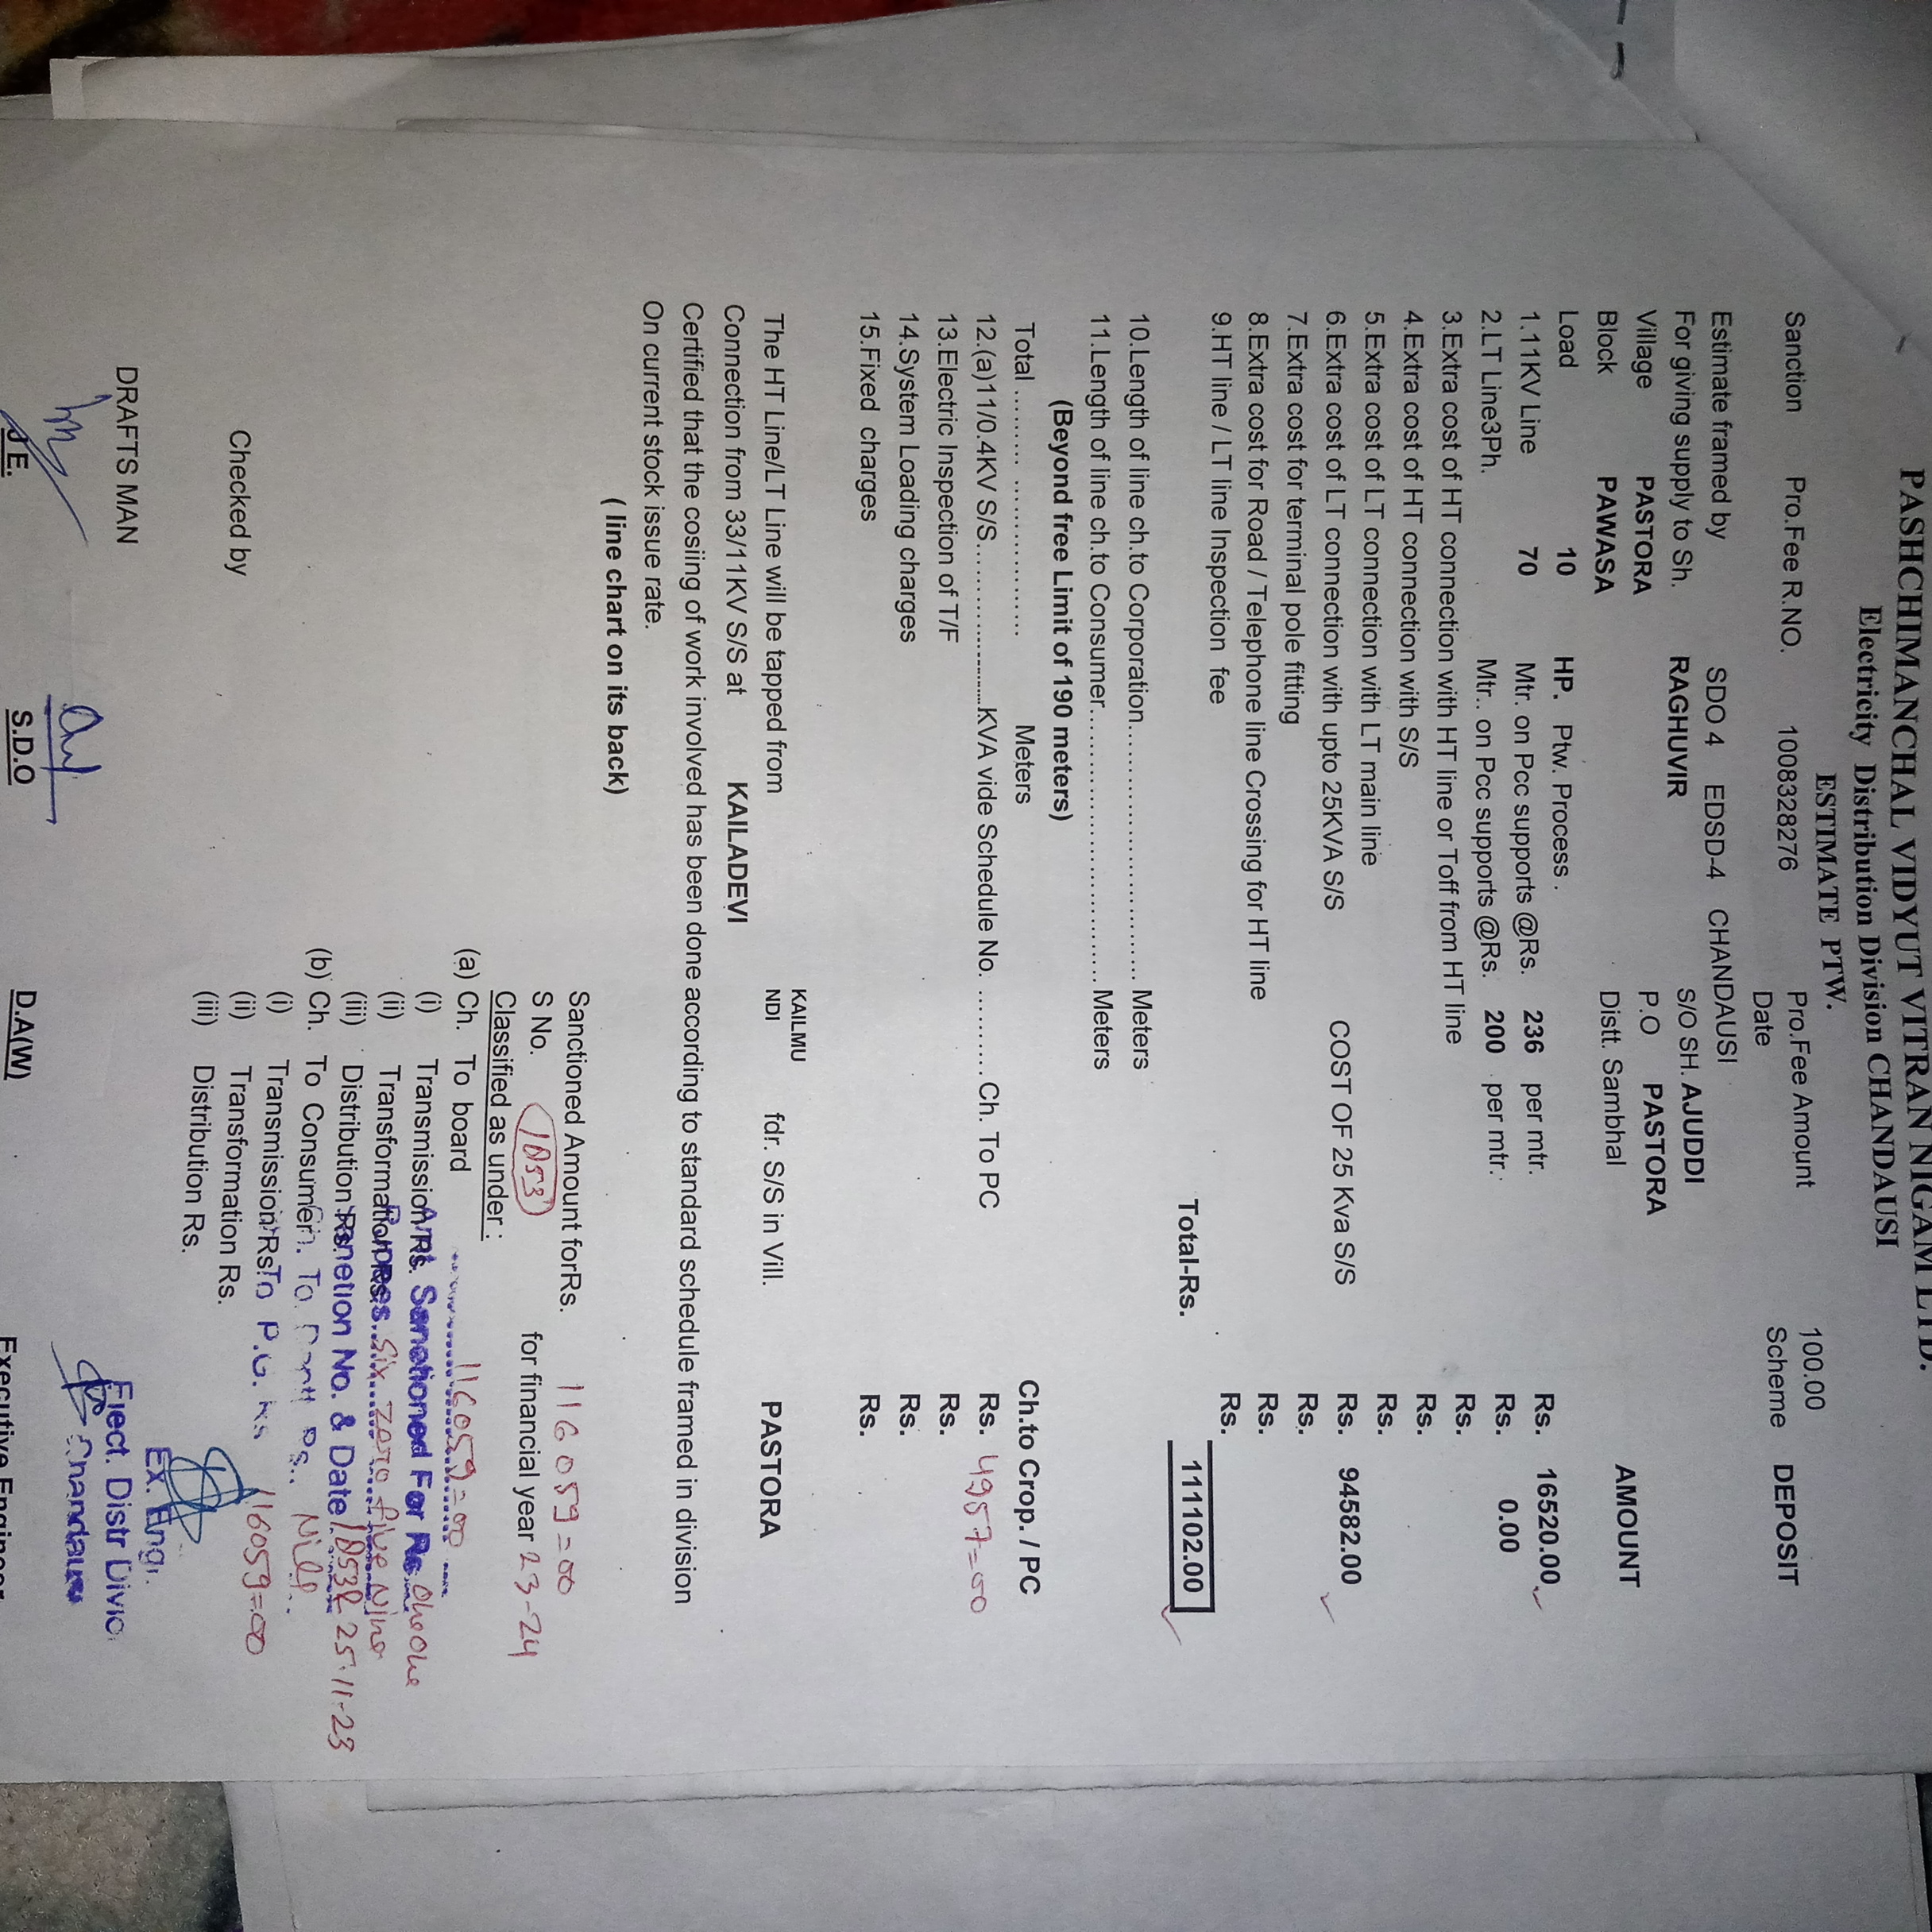 PASHCHIMANCHAL VIDYUT VITRAN NIGAM LTD.
Electricity Distribution Division CHANDAUSI
ESTIMATE PTW.
Sanction Pro.Fee R.NO. 1008328276 Pro.Fee Amount 100.00
Date Scheme DEPOSIT
Estimate framed by SDO 4 EDSD-4 CHANDAUSI
For giving supply to Sh. RAGHUVIR S/O SH. AJUDDI
Village PASTORA P.O PASTORA
Block PAWASA Distt. Sambhal AMOUNT
Load 10 HP. Ptw. Process .
1.11KV Line 70 Mtr. on Pcc supports @Rs. 236 per mtr. Rs. 16520.00
2.LT Line3Ph. Mtr.. on Pcc supports @Rs. 200 per mtr. Rs. 0.00
3.Extra cost of HT connection with HT line or Toff from HT line Rs.
4.Extra cost of HT connection with S/S Rs.
5.Extra cost of LT connection with LT main line Rs.
6.Extra cost of LT connection with upto 25KVA S/S COST OF 25 Kva S/S Rs. 94582.00
7.Extra cost for terminal pole fitting Rs.
8.Extra cost for Road / Telephone line Crossing for HT line Rs.
9.HT line / LT line Inspection fee Rs.
Total-Rs. 111102.00
10.Length of line ch.to Corporation.................................. Meters
11.Length of line ch.to Consumer.................................. Meters
(Beyond free Limit of 190 meters)
Total ......... .................... Meters Ch.to Crop. / PC
12.(a)11/0.4KV S/S.........................KVA vide Schedule No. .......... Ch. To PC Rs. 4957=00
13.Electric Inspection of T/F Rs.
14.System Loading charges Rs.
15.Fixed charges Rs.
KAILMU
The HT Line/LT Line will be tapped from NDI fdr. S/S in Vill. PASTORA
Connection from 33/11KV S/S at KAILADEVI
Certified that the cosiing of work involved has been done according to standard schedule framed in division
On current stock issue rate.
( line chart on its back)
Sanctioned Amount forRs. 116059=00
S No. 1053 for financial year 23-24
Classified as under :
116059=00
(a) Ch. To board
(i) Transmission Rs.
Amt. Sanctioned For Rs. One one
(ii) Transformation Rs.
Rupees. Six zero five Nine
(iii) Distribution Rs.
Sanction No. & Date 1053 & 25-11-23
(b) Ch. To Consumer. To Rs.. Nill
(i) Transmission Rs To P.G. Rs 116059=00
(ii) Transformation Rs.
(iii) Distribution Rs.
Checked by
Ex. Eng.
DRAFTS MAN Elect. Distr Divic
Chandausi
J.E. S.D.O D.A(W) Executive Engineer